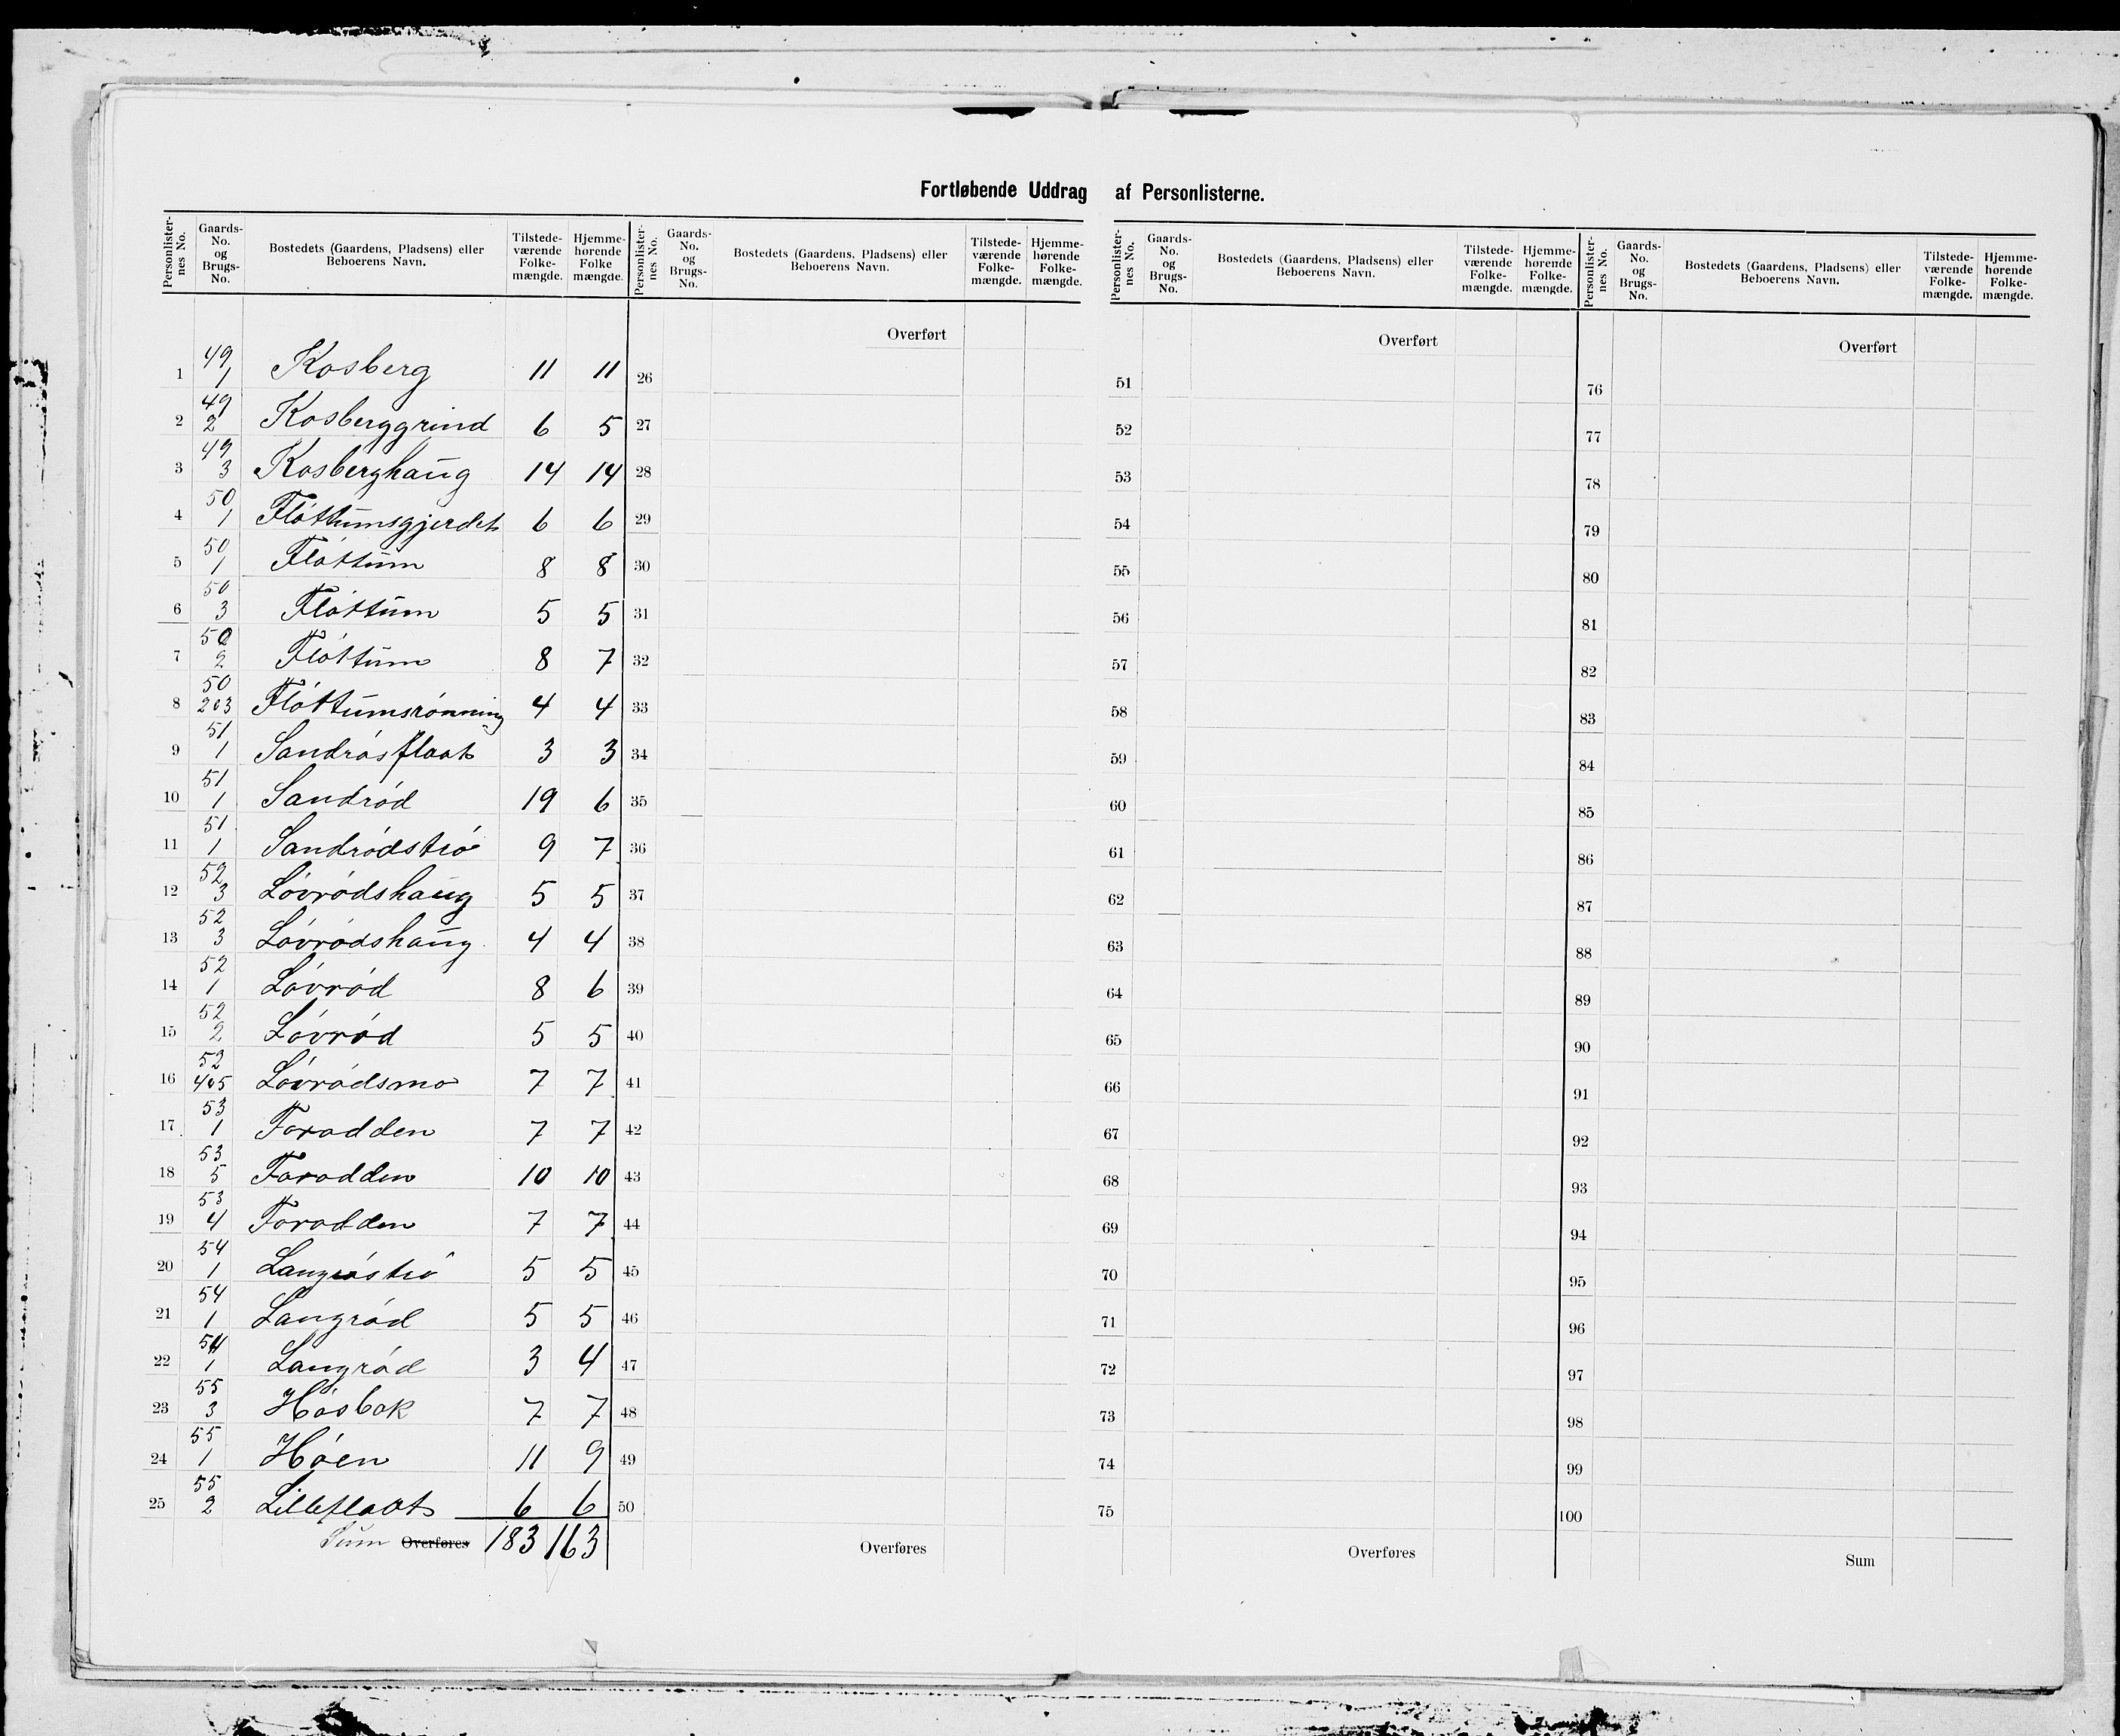 Fortløbende Uddrag af Personlisterne.
Personlister-nes No. | Gaards-No. og Brugs-No. | Bostedets (Gaardens, Pladsens) eller Beboerens Navn. | Tilstede-værende Folke-mængde. | Hjemme-hørende Folke mængde.
1 49/1 Kosberg 11 11
2 49/2 Kosberggrind 6 5
3 49/3 Kosberghaug 14 14
4 50/1 Fløttumsgjerdet 6 6
5 50/1 Fløttum 8 8
6 50/3 Fløttum 5 5
7 50/2 Fløttum 8 7
8 50/2o3 Fløttumsrønning 4 4
9 51/1 Sandrøsflaat 3 3
10 51/1 Sandrød 19 6
11 51/1 Sandrødstrø 9 7
12 52/3 Løvrødshaug 5 5
13 52/3 Løvrødshaug 4 4
14 52/1 Løvrød 8 6
15 52/2 Løvrød 5 5
16 52/4o5 Løvrødsmo 7 7
17 53/1 Forodden 7 7
18 53/5 Forodden 10 10
19 53/4 Forodden 7 7
20 54/1 Langrøstrø 5 5
21 54/1 Langrød 5 5
22 54/1 Langrød 3 4
23 55/3 Høsbak 7 7
24 55/1 Høen 11 9
25 55/2 Lilleflaat 6 6
Sum Overføres 183 163
Personlister-nes No. | Gaards-No. og Brugs-No. | Bostedets (Gaardens, Pladsens) eller Beboerens Navn. | Tilstede-værende Folke-mængde. | Hjemme-hørende Folke-mængde.
Overført
26
27
28
29
30
31
32
33
34
35
36
37
38
39
40
41
42
43
44
45
46
47
48
49
50
Overføres
Personlister-nes No. | Gaards-No. og Brugs-No. | Bostedets (Gaardens, Pladsens) eller Beboerens Navn. | Tilstede-værende Folke-mængde. | Hjemme-hørende Folke-mængde.
Overført
51
52
53
54
55
56
57
58
59
60
61
62
63
64
65
66
67
68
69
70
71
72
73
74
75
Overføres
Personlister-nes No. | Gaards-No. og Brugs-No. | Bostedets (Gaardens, Pladsens) eller Beboerens Navn. | Tilstede-værende Folke-mængde. | Hjemme-hørende Folke-mængde.
Overført
76
77
78
79
80
81
82
83
84
85
86
87
88
89
90
91
92
93
94
95
96
97
98
99
100
Sum